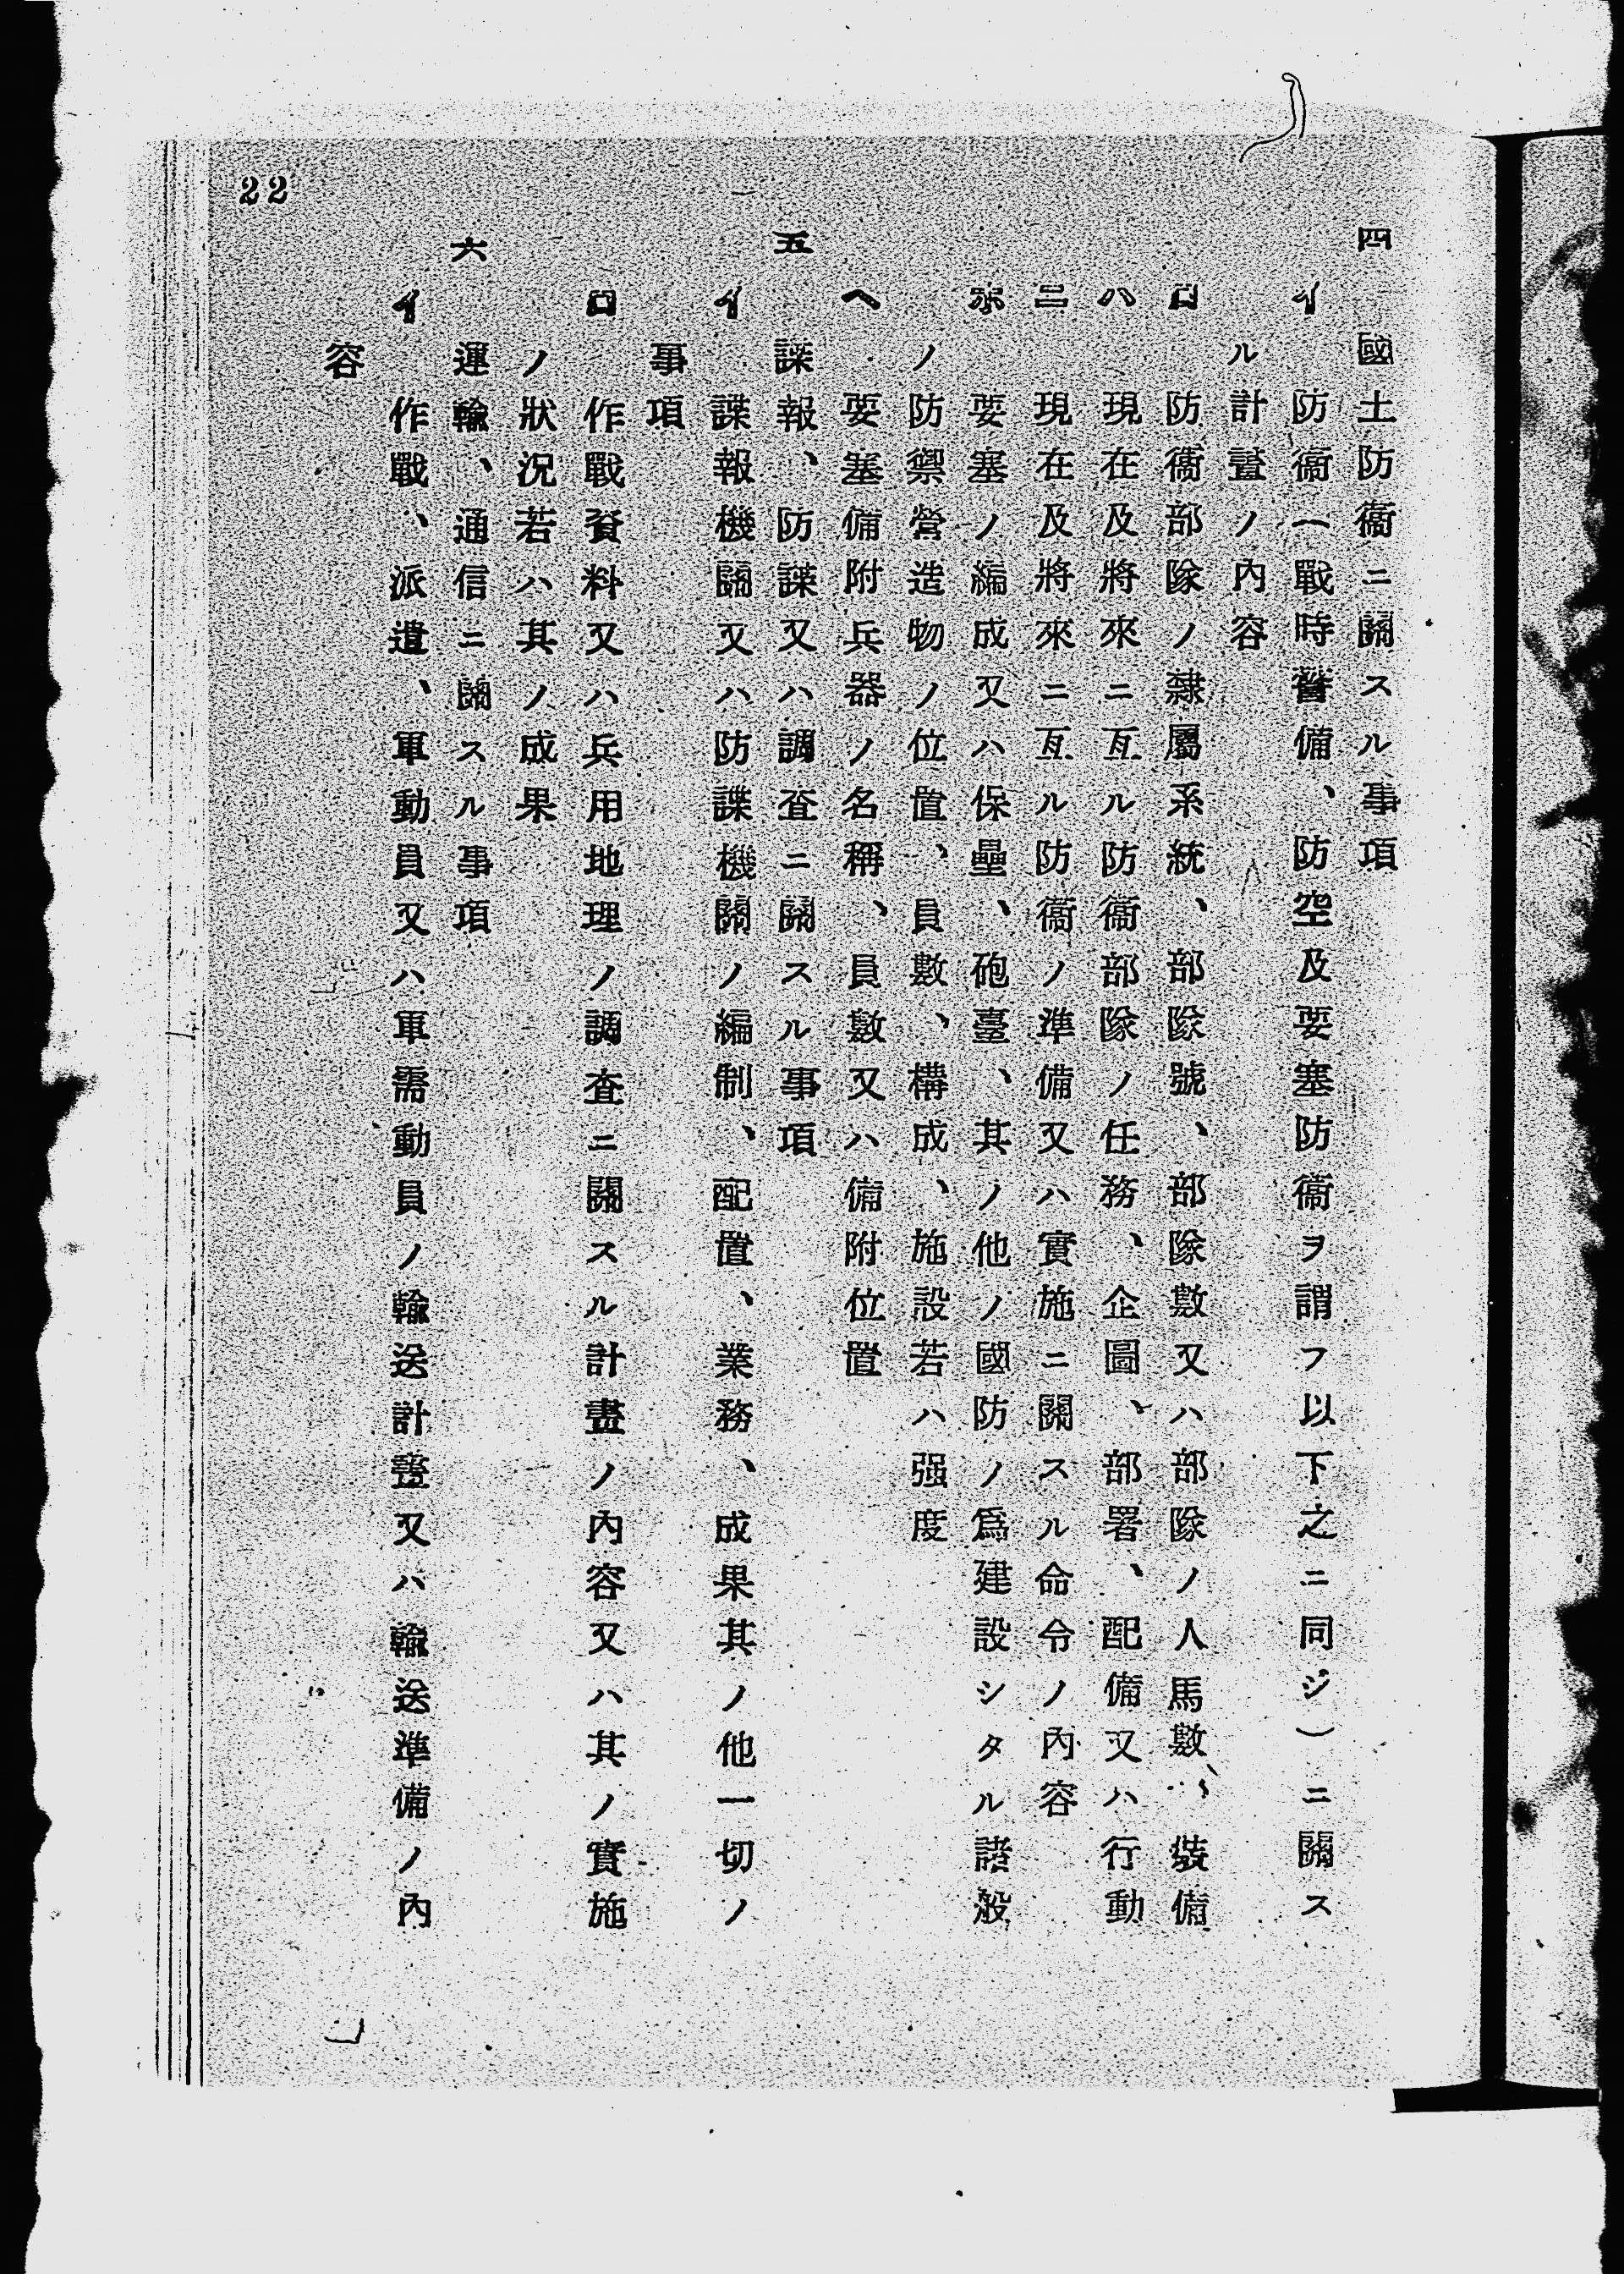 四　國土防衞ニ關スル事項
イ　防衞（戰時警備、防空及要塞防衞ヲ謂フ以下之ニ同ジ）ニ關ス
ル計畫ノ內容
ロ　防衞部隊ノ隸屬系統、部隊號、部隊數又ハ部隊ノ人馬數、裝備
ハ　現在及將來ニ亙ル防衞部隊ノ任務、企圖、部署、配備又ハ行動
ニ　現在及將來ニ亙ル防衞ノ準備又ハ實施ニ關スル命令ノ內容
ホ　要塞ノ編成又ハ保壘、砲臺、其ノ他ノ國防ノ爲建設シタル諸般
ノ防禦營造物ノ位置、員數、構成、施設若ハ强度
ヘ　要塞備附兵器ノ名稱、員數又ハ備附位置
五　諜報、防諜又ハ調査ニ關スル事項
イ　諜報機關又ハ防諜機關ノ編制、配置、業務、成果其ノ他一切ノ
事項
ロ　作戰資料又ハ兵用地理ノ調査ニ關スル計畫ノ內容又ハ其ノ實施
ノ狀況若ハ其ノ成果
六　運輸、通信ニ關スル事項
イ　作戰、派遣、軍動員又ハ軍需動員ノ輸送計畫又ハ輸送準備ノ內
容
22